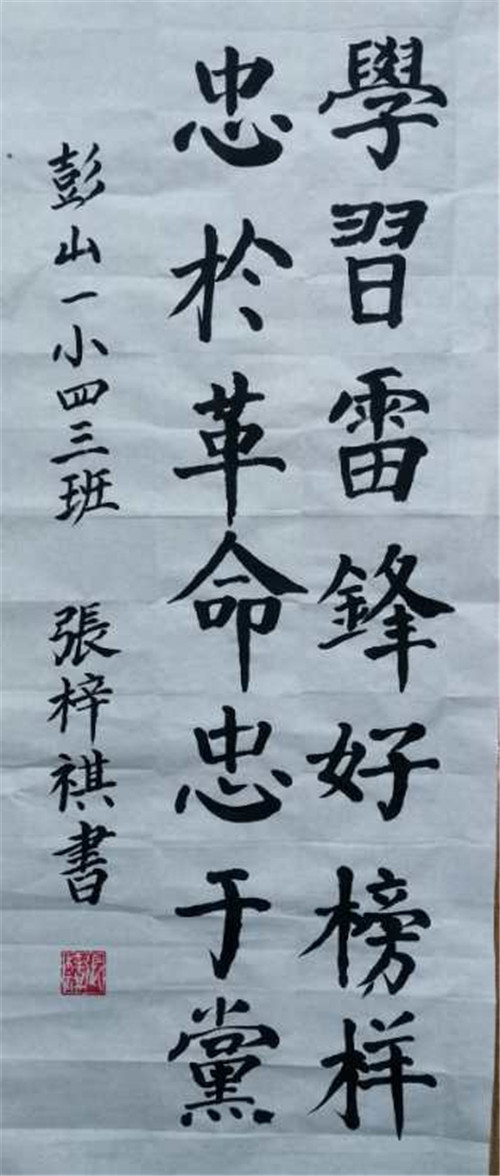 學習雷鋒好榜样
忠於革命忠于黨
彭山一小四三班 張梓祺書